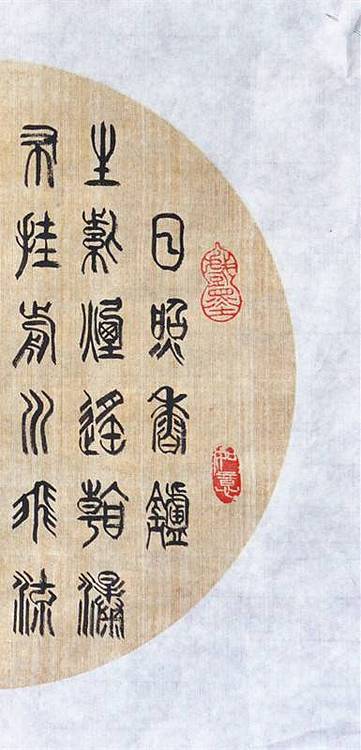 戲墨
如意
日照香鑪
生紫煙遙看瀑
布挂前川飛流